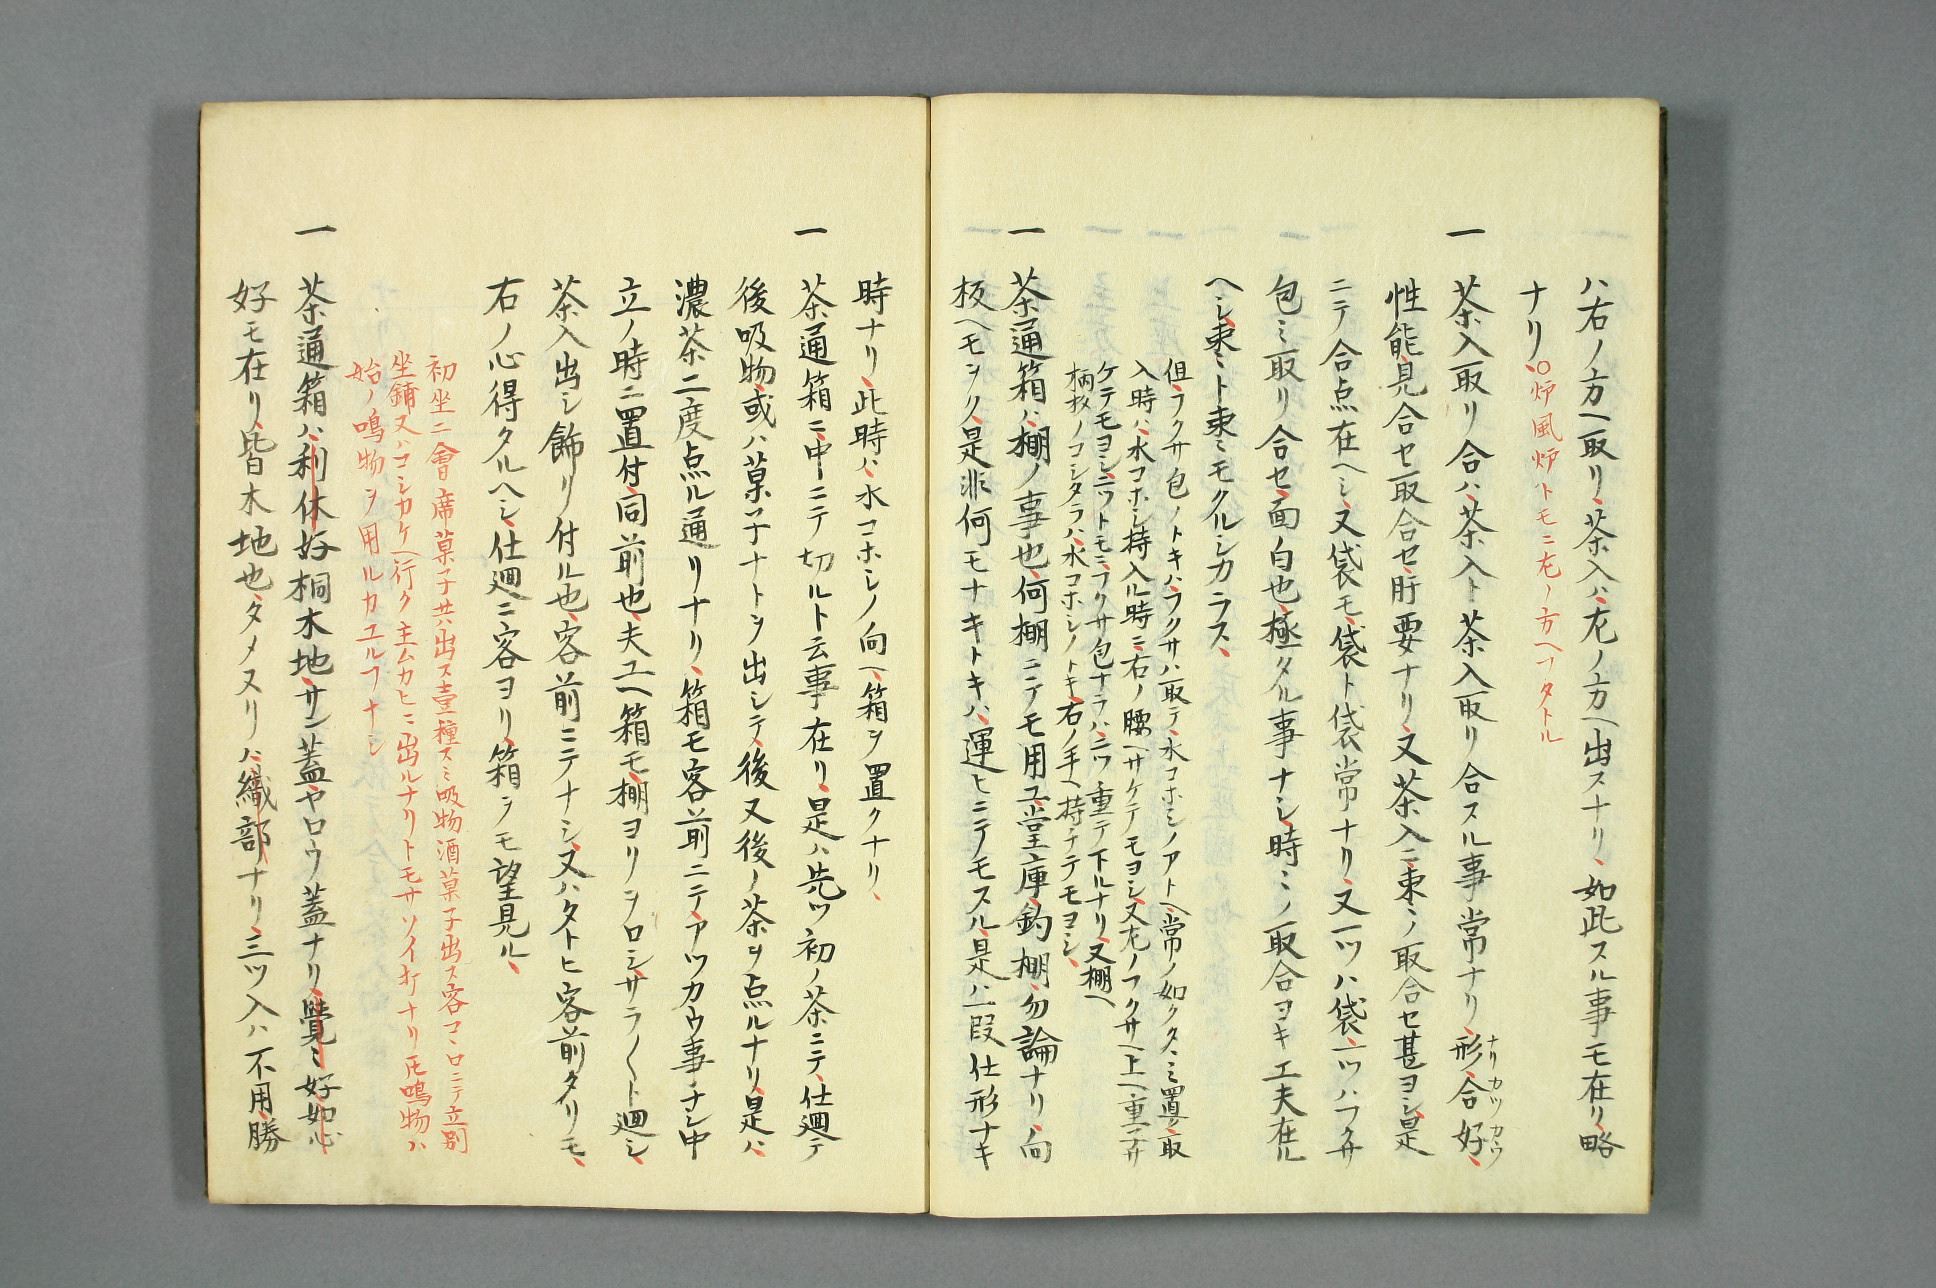 ハ右ノ方ヘ取リ、茶入ハ左ノ方ヘ出スナリ、如此スル事モ在リ、略
ナリ、○炉風炉トモニ左ノ方ヘワタトル
一 茶入取リ合ハ、茶入ト茶入取リ合スル事常ナリ、形合好、
ナリカツカウ
性能見合セ取合セ肝要ナリ、又茶入ニ棗ノ取合セ甚ヨシ、是
ニテ合点在ヘシ、又袋モ、袋ト袋常ナリ、又一ツハ袋、一ツハフクサ
包ミ取リ合セ、面白也、極タル事ナシ、時ミノ取合ヨキ工夫在ル
ヘシ、棗ミト棗ミモクルシカラス、
但、フクサ包ノトキハ、フクサハ取テ、水コホシノアトヘ、常ノ如クタヽミ置、取
入時ハ、水コホシ持入ル時ニ、右ノ腰ヘサケテモヨシ、又左ノフクサヘ上ヘ重テサ
ケテモヨシ、二ツトモニフクサ包ナラハ、二ツ重テ下ルナリ、又棚ヘ
柄杓ノコシタラハ、水コホシノトキ、右ノ手ヘ持チテモヨシ、
一 茶通箱ハ、棚ノ事也、何棚ニテモ用ユ、堂庫、釣棚、勿論ナリ、向
板ヘモヲク、是非何モナキトキハ、運ヒニテモスル、是ハ一段仕形ナキ
時ナリ、此時ハ、水コホシノ向ヘ、箱ヲ置クナリ、
一 茶通箱ニ、中ニテ切ルト云事在リ、是ハ先ツ初ノ茶ニテ、仕廻テ
後吸物、或ハ菓子ナトヲ出シテ、後又後ノ茶ヲ点ルナリ、是ハ
濃茶二度点ル通リナリ、箱モ客前ニテ、アツカウ事ナシ、中
立ノ時ニ置付、同前也、夫ユヘ箱モ、棚ヨリヲロシ、サラ〱ト廻シ、
茶入出シ飾リ付ル也、客前ニテナシ、又ハタトヒ客前タリモ、
右ノ心得タルヘシ、仕廻ニ客ヨリ、箱ヲモ望見ル、
初坐ニ會席菓子共ハ出ス壹種スミ吸物酒菓子出ス客コヽロニテ立別
坐鋪又ハコシカケヘ行ク主ムカヒニ出ルナリトモサソイ才ナリ𪜈鳴物ハ
始ノ鳴物ヲ用ルカユルフナシ
一 茶通箱ハ、利休好桐木地、サン蓋ヤロウ蓋ナリ、覺ミ好如心
好モ在リ、皆木地也、タメヌリハ、織部ナリ、三ツ入ハ不用、勝